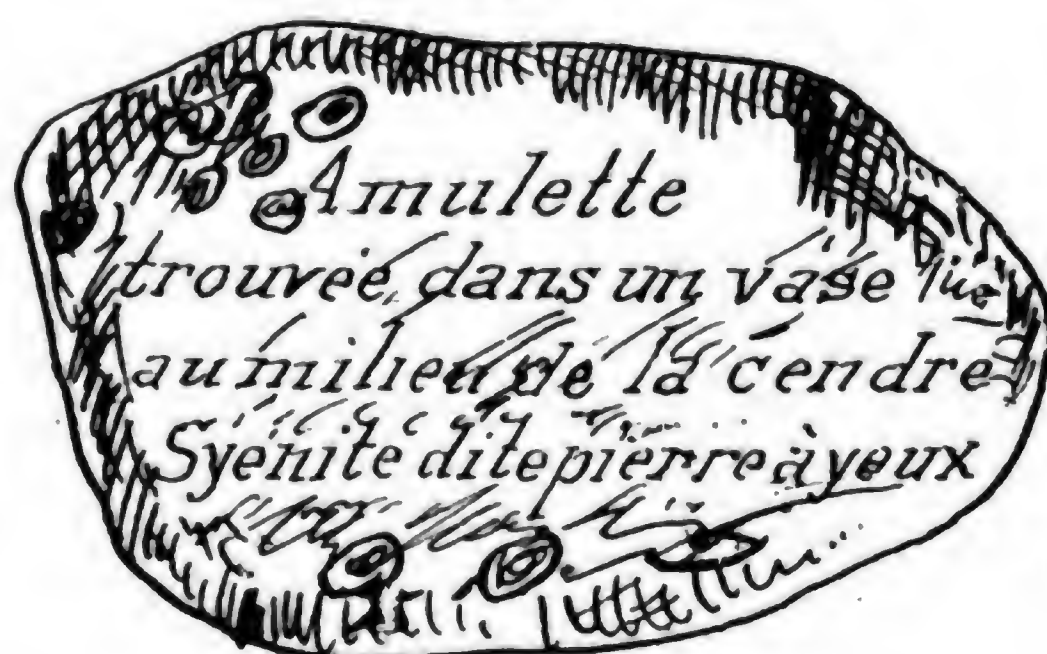 Amulette
trouvée dans un vase
au milieu de la cendre
Syénite dite pierre à yeux